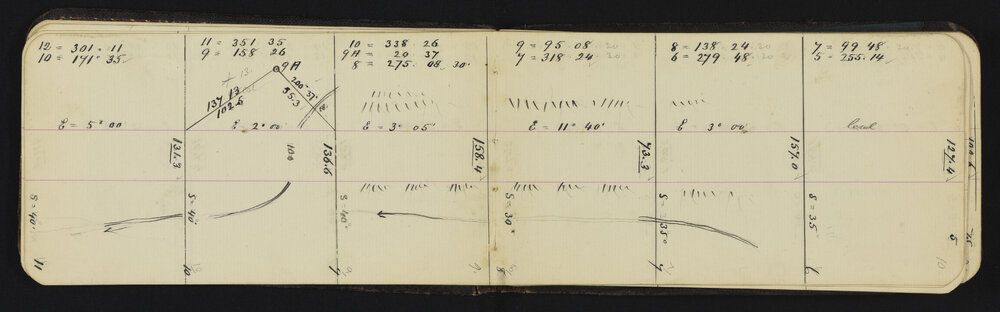 12 = 301 · 11
10 = 191° 35
11 = 351 35
9 = 158 26
9A
137 13
102.5
200° 37'
55.3
10 = 338 26
9A = 20 · 37
8 = 275 · 08 30'
9 = 95 08 20
7 = 318 24 20
8 = 138 · 24 20
6 = 279 48 20
7 = 99 48 20
5 = 255 · 14
E = 5° 00
E = 2° 00
E = 3° 05'
E = 11° 40'
E = 3° 00'
level
131.3
100
136.6
158.4
73.3
157.0
127.4
100.6
S = 40'
S = 40'
S = 40°
S = 30°
S = 35°
S = 35
25
11
10
9
8
7
6
5
10